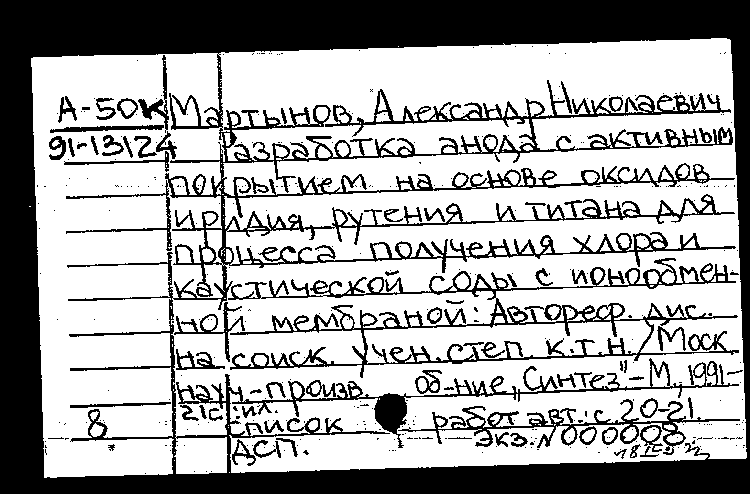 А-50к Мартынов, Александр Николаевич
91-13124 Разработка анода с активным
покрытием на основе оксидов
иридия, рутения и титана для
процесса получения хлора и
каустической соды с ионообмен-
ной мембраной: Автореф. дис.
на соиск. учен. степ. к.т.н./Моск.
науч.-произв. об-ние „Синтез"-М., 1991.-
21с.: ил.
8 список работ авт.: с. 20-21.
ДСП. Экз. N 000008.